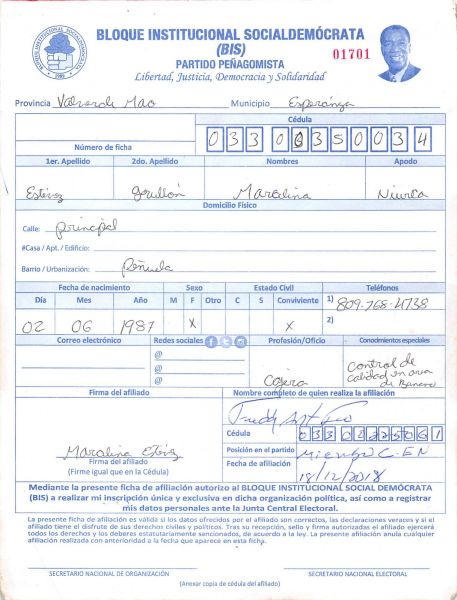 BLOQUE INSTITUCIONAL SOCIALDEMÓCRATA
(BIS)
PARTIDO PEÑAGOMISTA
Libertad, Justicia, Democracia y Solidaridad
01701
Provincia Valverde Mao Municipio Esperanza
Cédula
Número de ficha 033 0035003 4
1er. Apellido 2do. Apellido Nombres Apodo
Estévez Maralina
Domicilio Físico
Calle: principal
#Casa / Apt. / Edificio:
Barrio / Urbanización: Peñuela
Fecha de nacimiento Sexo Estado Civil Teléfonos
Día Mes Año M F Otro C S Conviviente 1) 809-768-4738
02 06 1987 X X 2)
Correo electrónico Redes sociales Profesión/Oficio Conocimientos especiales
@
@
@
Cajera
Control de
calidad en area
de Banano
Firma del afiliado Nombre completo de quien realiza la afiliación
Cédula
033 0225061
Maralina Estévez
Posición en el partido Miembro C.EN
Firma del afiliado
(Firme igual que en la Cédula)
Fecha de afiliación 18/12/2018
Mediante la presente ficha de afiliación autorizo al BLOQUE INSTITUCIONAL SOCIAL DEMÓCRATA
(BIS) a realizar mi inscripción única y exclusiva en dicha organización política, así como a registrar
mis datos personales ante la Junta Central Electoral.
La presente ficha de afiliación es válida si los datos ofrecidos por el afiliado son correctos, las declaraciones veraces y si el
afiliado tiene el disfrute de sus derechos civiles y políticos. Tras su recepción, sello y firma autorizadas el afiliado ejercerá
todos los derechos y los deberes estatutariamente sancionados, de acuerdo a la ley. La presente afiliación anula cualquier
afiliación realizada con anterioridad a la fecha que aparece en esta ficha.
SECRETARIO NACIONAL DE ORGANIZACIÓN SECRETARIO NACIONAL ELECTORAL
(Anexar copia de cédula del afiliado)